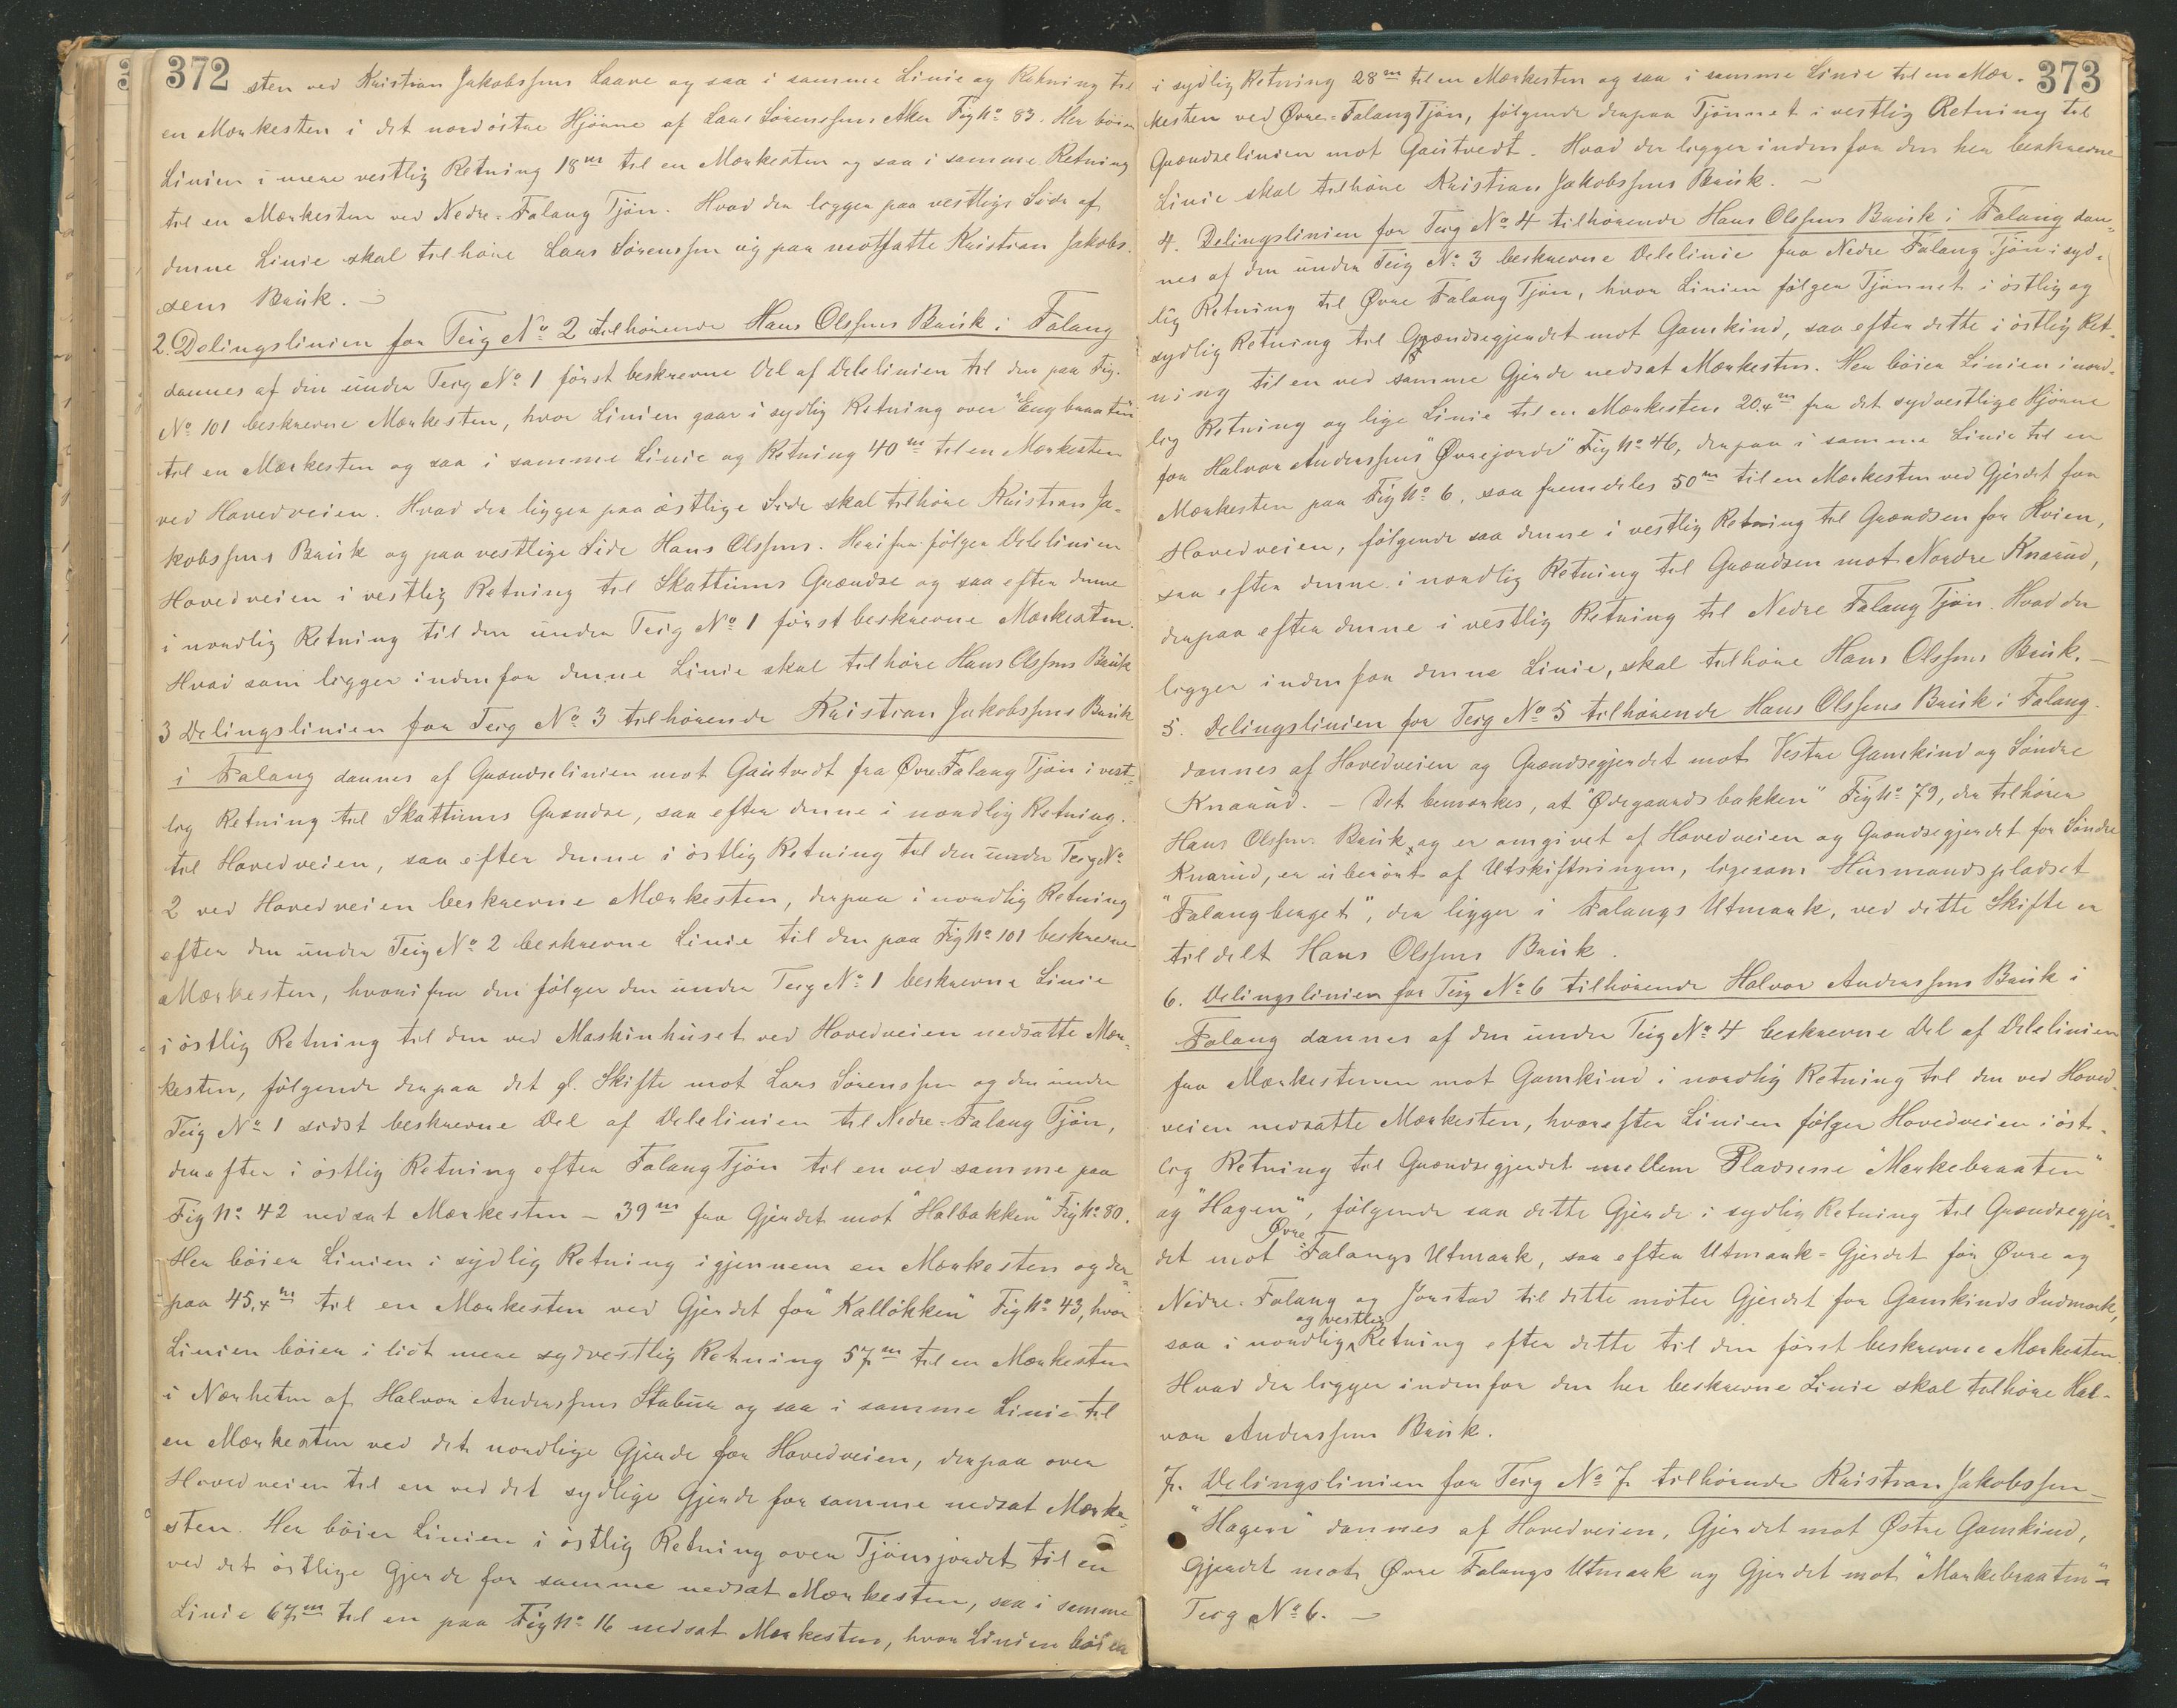 372
sten ved Kristian Jakobssens Laave og saa i samme Linie og Retning til
en Mærkesten i det nordöstre Hjörne af Lars Sörenssens Aker Fig No 83. Her böier
Linien i mere vestlig Retning 18m til en Mærkesten og saa i samme Retning
til en Mærkesten ved Nedre-Falang Tjön. Hvad der ligger paa vestlige Side af
denne Linie skal tilhöre Lars Sörenssen og paa motsatte Kristian Jakobs-
sens Bruk. —
2. Delingslinien for Teig No 2 tilhörende Hans Olssens Bruk i Falang
dannes af den under Teig No 1 först beskrevne Del af Delelinien til den paa Fig.
No 101 beskrevne Mærkesten, hvor Linien gaar i sydlig Retning over "Engbraaten"
til en Mærkesten og saa i samme Linie og Retning 40m til en Mærkesten
ved Hovedveien. Hvad der ligger paa östlige Side skal tilhöre Kristian Ja-
kobssens Bruk og paa vestlige Side Hans Olssens. Herifra fölger Delelinien
Hovedveien i vestlig Retning til Skattums Grændse og saa efter denne
i nordlig Retning til den under Teig No 1 först beskrevne Mærkesten.
Hvad som ligger indenfor denne Linie skal tilhöre Hans Olssens Bruk
3 Delingslinien for Teig No 3 tilhörende Kristian Jakobssens Bruk
i Falang dannes af Grændselinien mot Gaútvedt fra Øvre Falang Tjön i vest-
lig Retning til Skattums Grændse, saa efter denne i nordlig Retning.
til Hovedveien, saa efter denne i östlig Retning til den under Teig No
2 ved Hovedveien beskrevne Mærkesten, derpaa i nordlig Retning
efter den under Teig No 2 beskrevne Linie til den paa Fig No 101 beskrevne
Mærkesten, hvorifra den fölger den under Teig No 1 beskrevne Linie
i östlig Retning til den ved Maskinhuset ved Hovedveien nedsatte Mær-
kesten, fölgende derpaa det gl. Skifte mot Lars Sörenssen og den under
Teig No 1 sidst beskrevne Del af Delelinien til Nedre-Falang Tjön,
derefter i östlig Retning efter Falang Tjön til en ved samme paa
Fig No 42 nedsat Mærkesten — 39m fra Gjerdet mot "Halbakken" Fig No 80.
Her böier Linien i sydlig Retning igjennem en Mærkesten og der-
paa 45,4m til en Mærkesten ved Gjerdet for "Kallökken" Fig No 43, hvor
Linien böier i lidt mere sydvestlig Retning 57m til en Mærkesten
i Nærheten af Halvor Anderssens Stabur og saa i samme Linie til
en Mærkesten ved det nordlige Gjerde for Hovedveien, derpaa over
Hovedveien til en ved det sydlige Gjerde for samme nedsat Mærke-
sten. Her böier Linien i östlig Retning over Tjönsjordet til en
ved det östlige Gjerde for samme nedsat Mærkesten, saa i samme
Linie 67m til en paa Fig No 16 nedsat Mærkesten, hvor Linien böier
373
i sydlig Retning 28m til en Mærkesten og saa i samme Linie til en Mær-
kesten ved Øvre-Falang Tjön, fölgende derpaa Tjönnet i vestlig Retning til
Grændselinien mot Gaútvedt. Hvad der ligger indenfor den her beskrevne
Linie skal tilhöre Kristian Jakobssens Bruk. —
4. Delingslinien for Teig No 4 tilhörende Hans Olssens Bruk i Falang dan-
nes af den under Teig No 3 beskrevne Delelinie fra Nedre Falang Tjön i syd-
lig Retning til Øvre Falang Tjön, hvor Linien fölger Tjönnet i östlig og
sydlig Retning til Grændsegjerdet mot Gamkind, saa efter dette i östlig Ret-
ning til en ved samme Gjerde nedsat Mærkesten. Her böier Linien i nord-
lig Retning og lige Linie til en Mærkesten 20,4m fra det sydvestlige Hjörne
for Halvor Anderssens "Øvrejorde" Fig No 46, derpaa i samme Linie til en
Mærkesten paa Fig No 6, saa fremdeles 50m til en Mærkesten ved Gjerdet for
Hovedveien, fölgende saa denne i vestlig Retning til Grændsen for Kvien,
saa efter denne i nordlig Retning til Grændsen mot Nordre Knarud,
derpaa efter denne i vestlig Retning til Nedre Falang Tjön. Hvad der
ligger indenfor denne Linie, skal tilhöre Hans Olssens Bruk. —
5. Delingslinien for Teig No 5 tilhörende Hans Olssens Bruk i Falang.
dannes af Hovedveien og Grændsegjerdet mot Vestre Gamkind og Söndre
Knarud. — Det bemærkes, at "Ødegaardsbakken" Fig No 79, der tilhörer
Hans Olssens Bruk, og er omgivet af Hovedveien og Grændsegjerdet for Söndre
Knarud, er uberört af Utskiftningen, ligesom Husmandspladset
"Falangberget", der ligger i Falangs Utmark, ved dette Skifte er
tildelt Hans Olssens Bruk.
6. Delingslinien for Teig No 6 tilhörende Halvor Anderssens Bruk i
Falang dannes af den under Teig No 4 beskrevne Del af Delelinien
fra Mærkestenen mot Gamkind i nordlig Retning til den ved Hoved-
veien nedsatte Mærkesten, hvorefter Linien fölger Hovedveien i öst-
lig Retning til Grændsegjerdet mellem Pladsene "Markebraaten"
og "Hagen", fölgende saa dette Gjerde i sydlig Retning til Grændsegjer-
det mot Øvre Falangs Utmark, saa efter Utmark-Gjerdet for Øvre og
Nedre-Falang og Jorstad til dette möter Gjerdet for Gamkinds Indmark,
saa i nordlig og vestlig Retning efter dette til den först beskrevne Mærkesten.
Hvad der ligger indenfor den her beskrevne Linie skal tilhöre Hal-
vor Anderssens Bruk.
7. Delingslinien for Teig No 7 tilhörende Kristian Jakobssen —
"Hagen" dannes af Hovedveien, Gjerdet mot Østre Gamkind,
Gjerdet mot Øvre Falangs Utmark og Gjerdet mot "Markebraaten" —
Teig No 6. —